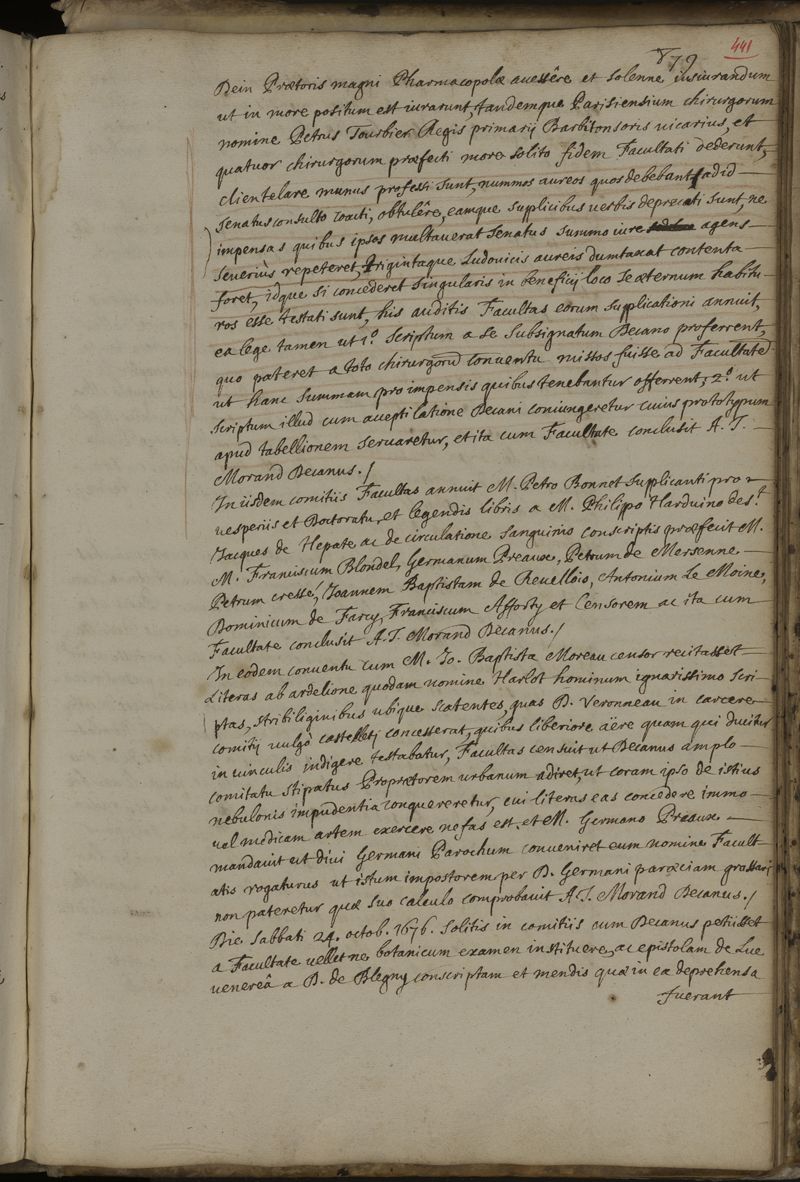 441
879
Dein Prætoris magni Pharmacopolæ accessêre et solenne iusiurandum
ut in more positum est iurarunt, tandemque Parisiensium chirurgorum
nomine Petrus Tourbier Regis primarij Barbitonsoris vicarius, et
quatuor chirurgorum præfecti more solito fidem Facultati dederunt,
clientelare munus professi sunt, nummos aureos quos debebant, ad id
senatusconsulto coacti, obtulêre, eamque supplicibus verbis deprecati sunt, ne
impensas quibus ipsos multauerat senatus summo iure agens
seuerius repeteret, trigintaque Ludouicis aureis dumtaxat contenta
foret, idque si concederet singularis in beneficij loco se æternum habitu
ros esse testati sunt, his auditis Facultas eorum supplicationi annuit,
ea lege tamen ut 1.° scriptum a se subsignatum Decano proferrent,
quo pateret a toto chirurgorũ conuentu missos fuisse ad Facultatẽ
ut hanc summam pro impensis quibus tenebantur offerrent, 2.° ut
scriptum illud cum acceptilatione Decani coniungeretur cuius prototypum
apud tabellionem seruaretur, et ita cum Facultate conclusit A. J.
Morand Decanus./
In iisdem comitiis Facultas annuit M. Petro Bonnet supplicanti pro
vesperiis et Doctoratu, et legendis libris a M. Philippo Harduino de S.t
Jacques de Hepate ac de circulatione sanguinis conscriptis præfecit M.
M. Franciscum Blondel, Germanum Preaux, Petrum de Mersenne
Petrum cresse, Joannem Baptistam de Reuellois, Antonium Le Moine,
Dominicum de Farcy, Franciscum Afforty et Censorem ac ita cum
Facultate conclusit A. J. Morand Decanus./
In eodem conuentu cum M. Jo. Baptista Moreau censor recitasset
Literas ab ardelione quodam nomine Harlot hominum ignarissimo scri
ptas, stribiliginibus ubique scatentes, quas D. Veronneau in carcere
comitij vulgò castelletj concesserat, quibus liberiore äere quam qui ducitur
in vinculis indigere testabatur, Facultas censuit ut Decanus amplo
comitatu stipatus Proprætorem urbanum adiret, ut coram ipso de istius
nebulonis impudentia conquereretur, cui literas eas concedere immo
vel medicam artem exercere nefas est. et M. Germano Preaux
mandauit ut diui Germani Parochum conueniret eum nomine Facult
atis rogaturus ut istum impostorem per D. Germani paræciam grassari
non pateretur quæ suo calculo comprobauit A. J. Morand Decanus./
Die Sabbati 24. octob. 1676. solitis in comitiis cum Decanus petiisset
a Facultate vellet ne botanicum examen instituere, ac epistolam de Lue
venereâ a D. de Blegny conscriptam et mendis quæ in ea deprehensa
fuerant